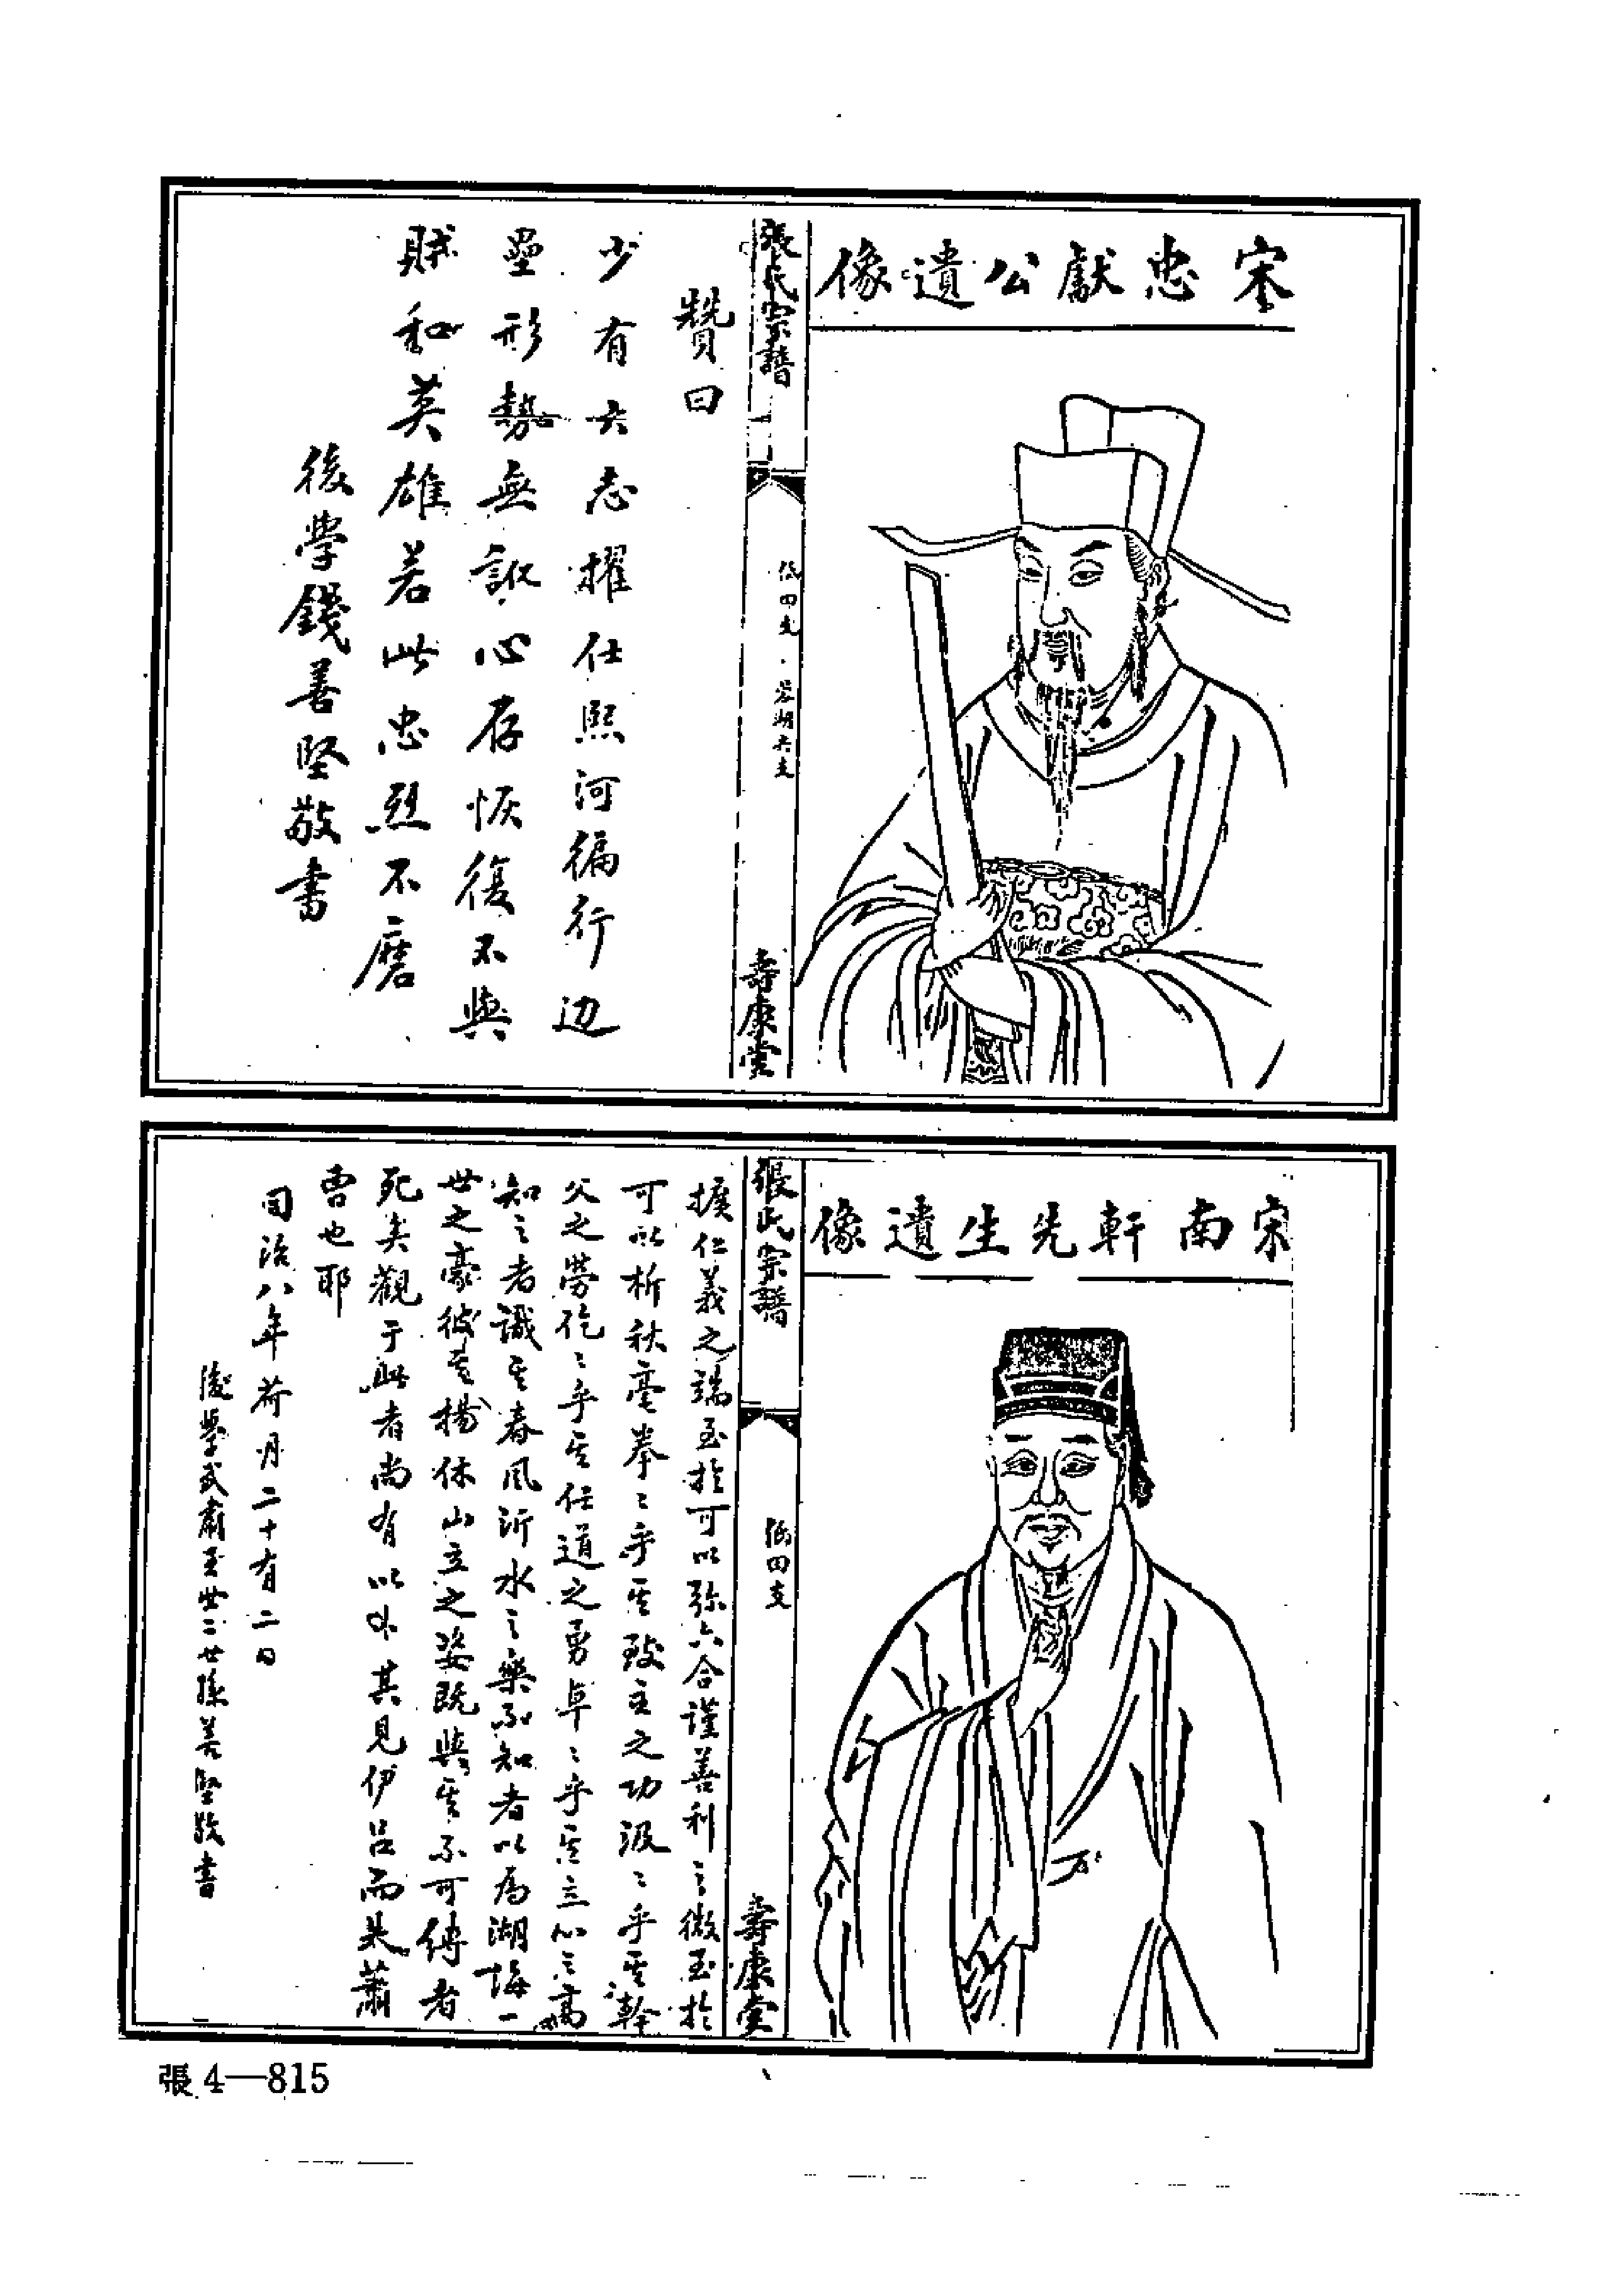 宋忠獻公遺像
張氏宗譜
伍四支
六支
壽康堂
贊曰
少有大志擢仕熙河徧行边
壘形勢無訛心存恢復不與
賊和英雄若此忠烈不磨
後學錢善堅敬書
宋南軒先生遺像
張氏宗譜
伍四支
壽康堂
擴仁義之端至於可以弥六合謹善利之微至於
可以析秋毫拳〻乎其致主之功汲〻乎其幹
父之勞矻〻乎其任道之勇卓〻乎其立心之高
知之者識其春風沂水之樂不知者以為湖海一
世之豪彼其揚休山立之姿既與其不可傳者
死矣觀于此者尚有以卜其見伊呂而失蕭
曹也耶
同治八年荷月二十有二日
後學武肅王卅二世孫善堅敬書
張4—815